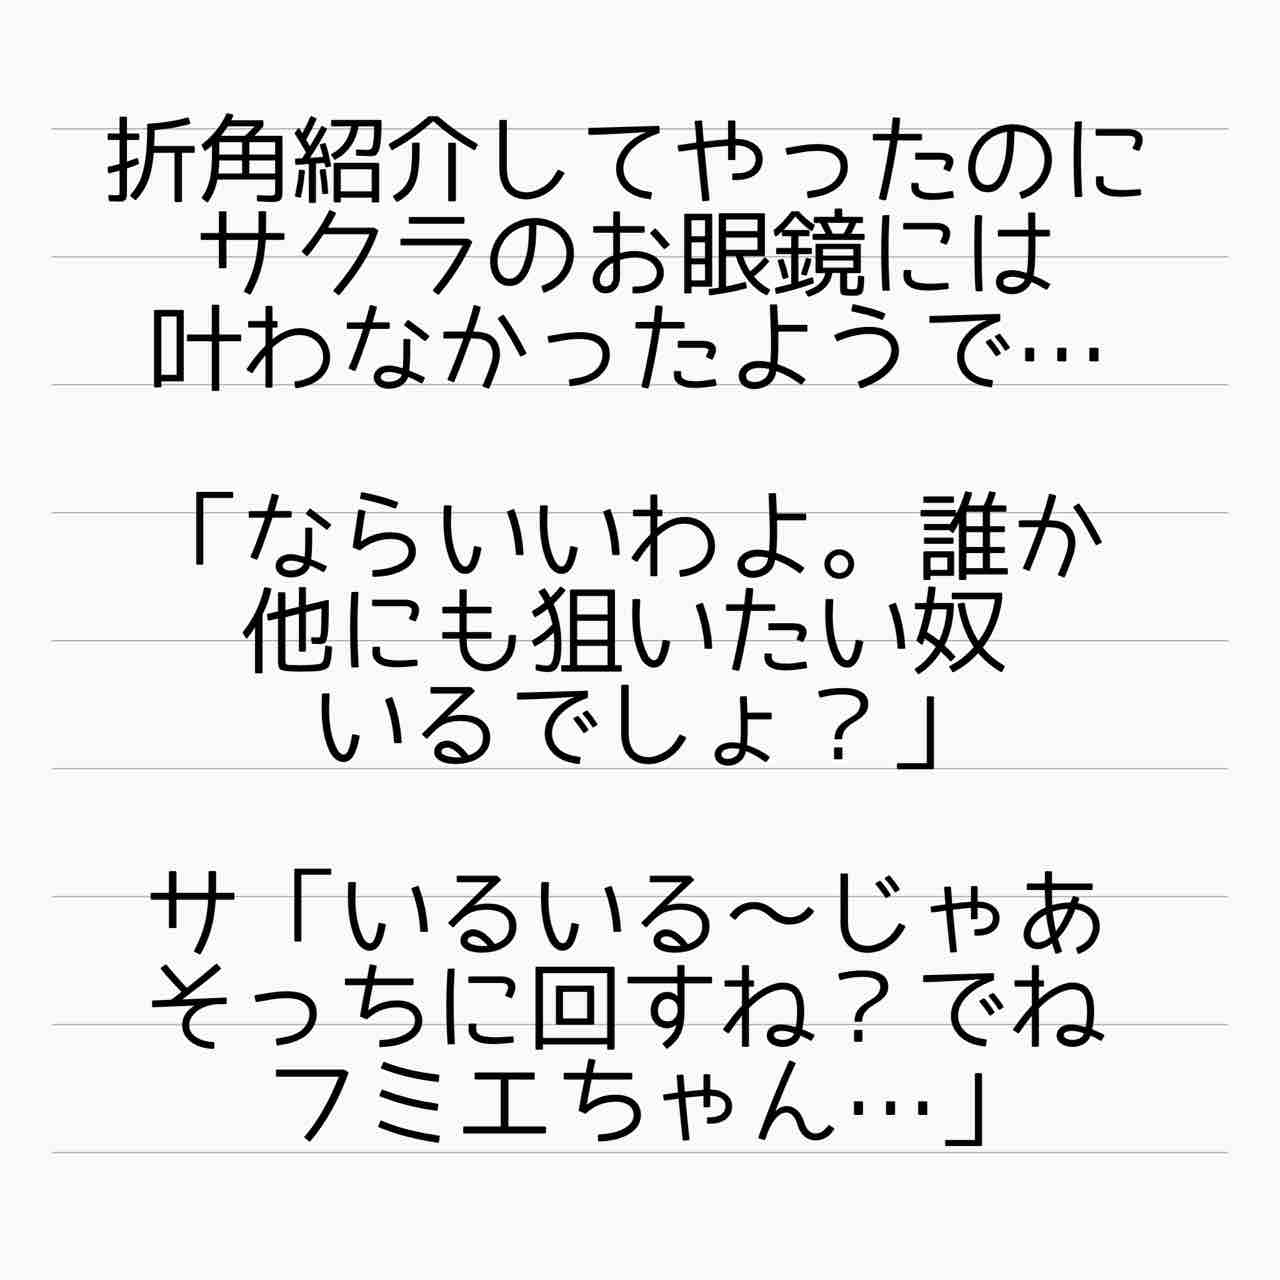 折角紹介してやったのに
サクラのお眼鏡には
叶わなかったようで…
「ならいいわよ。誰か
他にも狙いたい奴
いるでしょ？」
サ「いるいる～じゃあ
そっちに回すね？でね
フミエちゃん…」